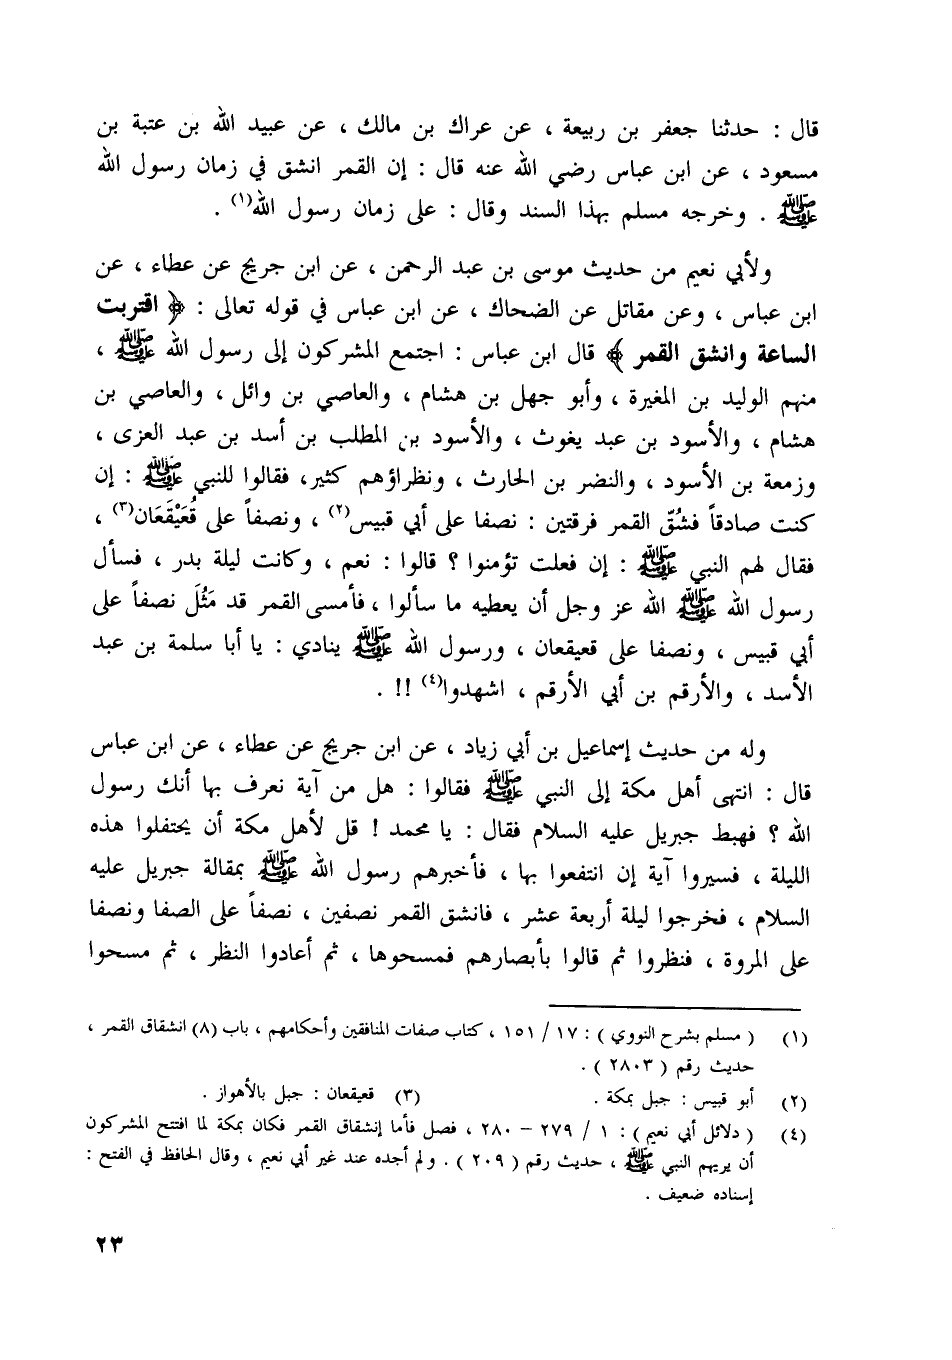 قال : حدثنا جعفر بن ربيعة ، عن عراك بن مالك ، عن عبيد الله بن عتبة بن
مسعود ، عن ابن عباس رضي الله عنه قال : إن القمر انشق في زمان رسول الله
ﷺ . وخرجه مسلم بهذا السند وقال : على زمان رسول الله(١) .
ولأبي نعيم من حديث موسى بن عبد الرحمن ، عن ابن جريج عن عطاء ، عن
ابن عباس ، وعن مقاتل عن الضحاك ، عن ابن عباس في قوله تعالى : ﴿ اقتربت
الساعة وانشق القمر ﴾ قال ابن عباس : اجتمع المشركون إلى رسول الله ﷺ ،
منهم الوليد بن المغيرة ، وأبو جهل بن هشام ، والعاصي بن وائل ، والعاصي بن
هشام ، والأسود بن عبد يغوث ، والأسود بن المطلب بن أسد بن عبد العزى ،
وزمعة بن الأسود ، والنضر بن الحارث ، ونظراؤهم كثير، فقالوا للنبي ﷺ : إن
كنت صادقاً فشُقّ القمر فرقتين : نصفا على أبي قبيس(٢) ، ونصفاً على قُعَيْقَعَان(٣) ،
فقال لهم النبي ﷺ : إن فعلت تؤمنوا ؟ قالوا : نعم ، وكانت ليلة بدر ، فسأل
رسول الله ﷺ الله عز وجل أن يعطيه ما سألوا ، فأمسى القمر قد مَثُلَ نصفاً على
أبي قبيس ، ونصفا على قعيقعان ، ورسول الله ﷺ ينادي : يا أبا سلمة بن عبد
الأسد ، والأرقم بن أبي الأرقم ، اشهدوا(٤) !! .
وله من حديث إسماعيل بن أبي زياد ، عن ابن جريج عن عطاء ، عن ابن عباس
قال : انتهى أهل مكة إلى النبي ﷺ فقالوا : هل من آية نعرف بها أنك رسول
الله ؟ فهبط جبريل عليه السلام فقال : يا محمد ! قل لأهل مكة أن يحتفلوا هذه
الليلة ، فسيروا آية إن انتفعوا بها ، فأخبرهم رسول الله ﷺ بمقالة جبريل عليه
السلام ، فخرجوا ليلة أربعة عشر ، فانشق القمر نصفين ، نصفاً على الصفا ونصفا
على المروة ، فنظروا ثم قالوا بأبصارهم فمسحوها ، ثم أعادوا النظر ، ثم مسحوا
(١) ( مسلم بشرح النووي ) : ١٧ / ١٥١ ، كتاب صفات المنافقين وأحكامهم ، باب (٨) انشقاق القمر ،
حديث رقم ( ٢٨٠٣ ) .
(٢) أبو قبيس : جبل بمكة . (٣) قعيقعان : جبل بالأهواز .
(٤) ( دلائل أبي نعيم ) : ١ / ٢٧٩ – ٢٨٠ ، فصل فأما إنشقاق القمر فكان بمكة لما افتتح المشركون
أن يريهم النبي ﷺ ، حديث رقم ( ٢٠٩ ) . ولم أجده عند غير أبي نعيم ، وقال الحافظ في الفتح :
إسناده ضعيف .
٢٣